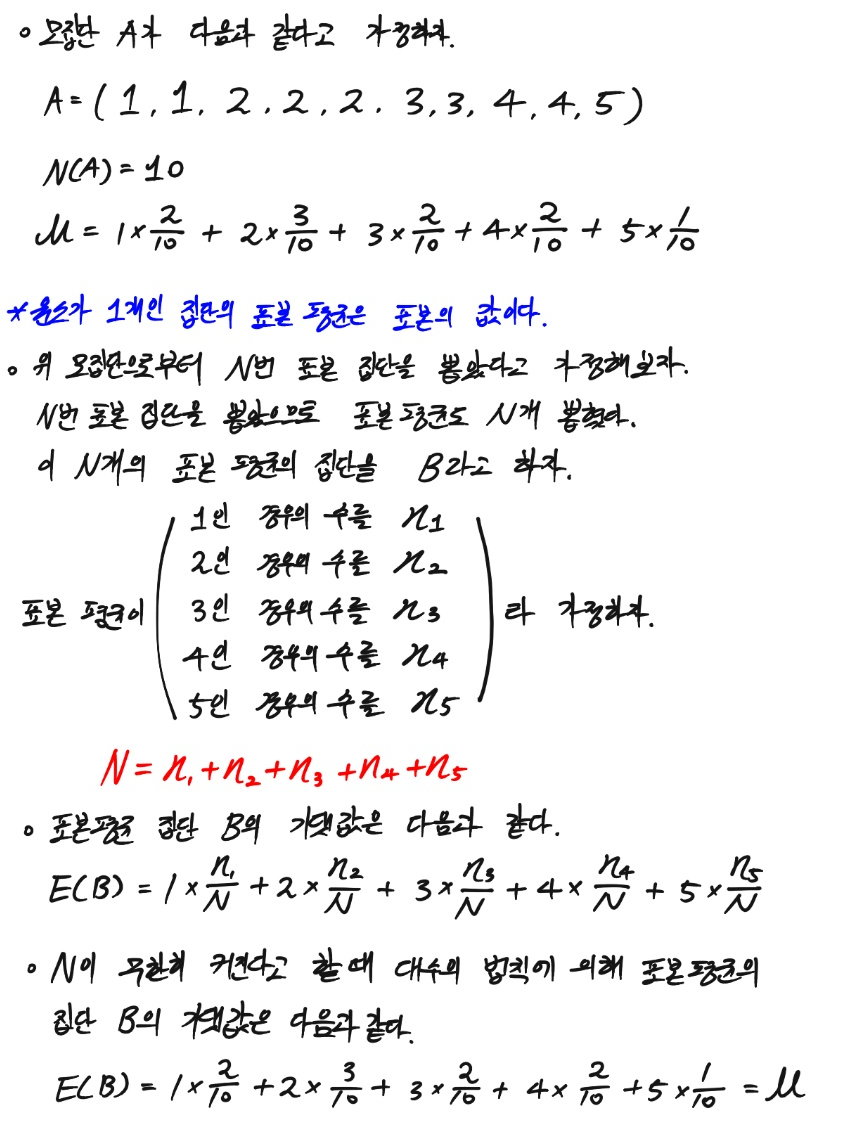 ∘ 모집단 A가 다음과 같다고 가정하자.
A = ( 1, 1, 2, 2, 2, 3, 3, 4, 4, 5 )
N(A) = 10
μ = 1×2/10 + 2×3/10 + 3×2/10 + 4×2/10 + 5×1/10
* 원소가 1개인 집단의 표본 평균은 표본의 값이다.
∘ 위 모집단으로부터 N번 표본 집단을 뽑았다고 가정해보자.
N번 표본 집단을 뽑았으므로 표본 평균도 N개 뽑혔다.
이 N개의 표본 평균의 집단을 B라고 하자.
1인 경우의 수를 n₁
2인 경우의 수를 n₂
표본 평균이 3인 경우의 수를 n₃ 라 가정하자.
4인 경우의 수를 n₄
5인 경우의 수를 n₅
N = n₁ + n₂ + n₃ + n₄ + n₅
∘ 표본평균 집단 B의 기댓값은 다음과 같다.
E(B) = 1×n₁/N + 2×n₂/N + 3×n₃/N + 4×n₄/N + 5×n₅/N
∘ N이 무한히 커진다고 할 때 대수의 법칙에 의해 표본평균의
집단 B의 기댓값은 다음과 같다.
E(B) = 1×2/10 + 2×3/10 + 3×2/10 + 4×2/10 + 5×1/10 = μ